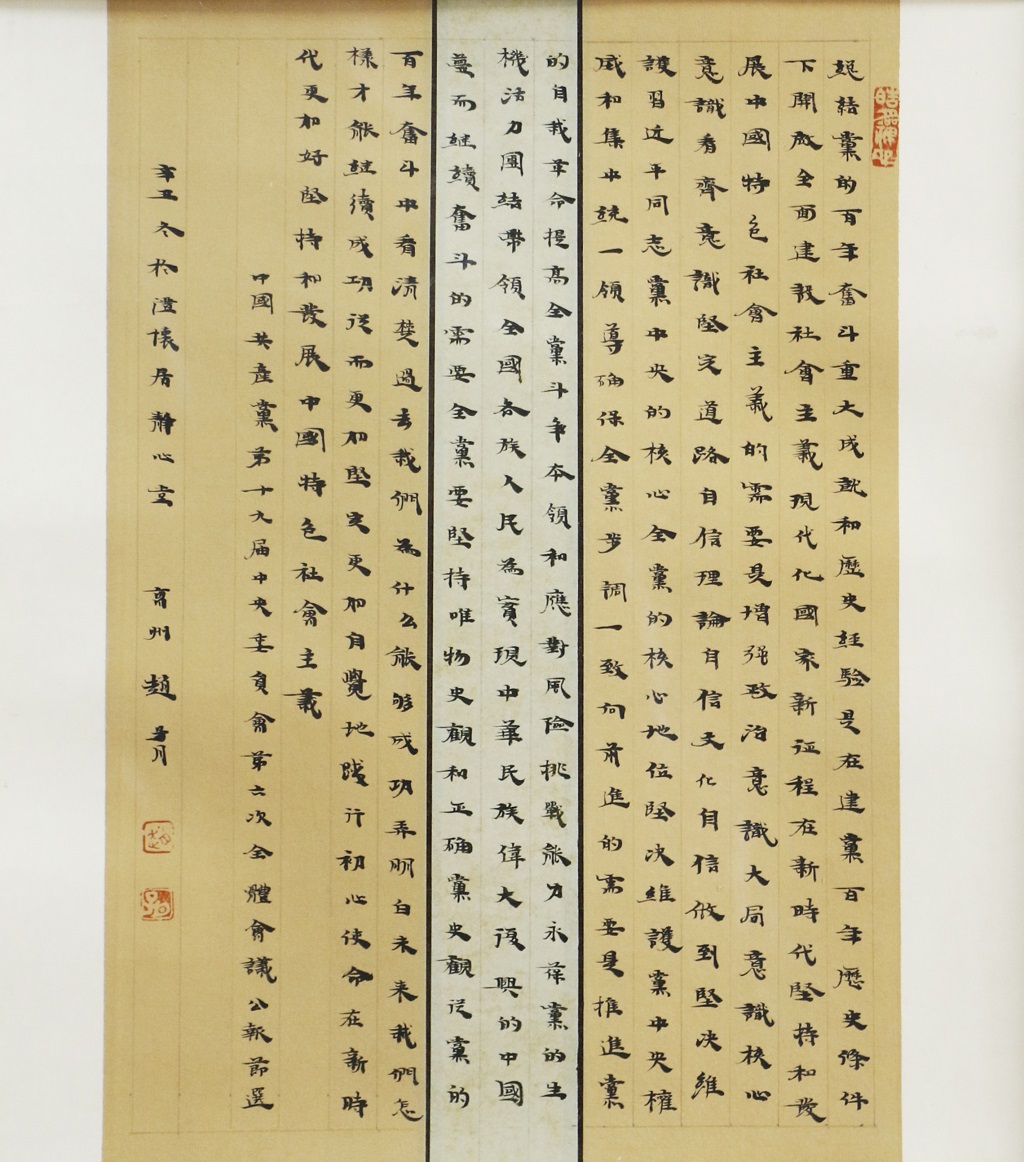 總結黨的百年奮斗重大成就和歷史經驗是在建黨百年歷史條件
下開啟全面建設社會主義現代化國家新征程在新時代堅持和發
展中國特色社會主義的需要是增强政治意識大局意識核心
意識看齊意識堅定道路自信理論自信文化自信做到堅决維
護習近平同志黨中央的核心全黨的核心地位堅决維護黨中央權
威和集中統一領導确保全黨步調一致向前進的需要是推進黨
的自我革命提高全黨斗争本領和應對風險挑戰能力永葆黨的生
機活力團結帶領全國各族人民為實現中華民族偉大復興的中國
夢而継續奮斗的需要全黨要堅持唯物史觀和正确黨史觀从黨的
百年奮斗中看清楚過去我們為什么能够成功弄明白未来我們怎
樣才能継續成功从而更加堅定更加自覺地踐行初心使命在新時
代更加好堅持和發展中國特色社會主義
中國共產黨第十九届中央委員會第六次全體會議公報節選
辛丑冬於澄懷居静心堂 青州 趙